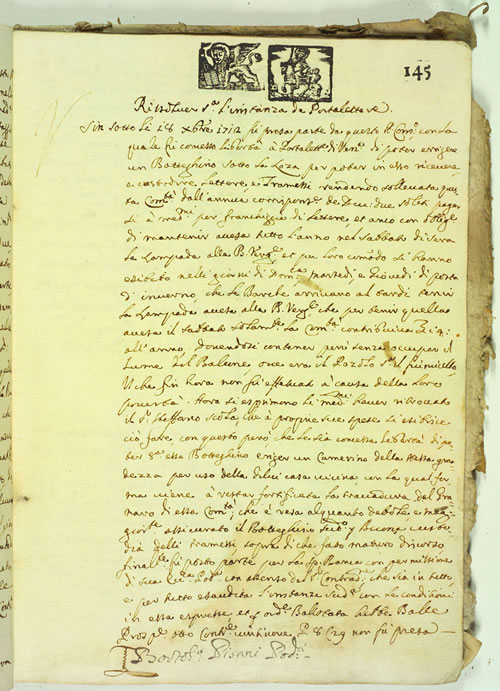 145
Rissoluer s.ª L'instanza de Portalettere.
Sin sotto li 28 Xbre 1712 fù presa parte da questa Com.tà con la
quale fù concesso libertà à Portalettere di Ven.ª di poter erigere
un Botteghino sotto la Loza per poter in esso ricevere,
e custodire Lettere, e Tramessi rendendo sollevata questa
Com.tà dall'annua corrisponsª de Ducᵗⁱ due soliti pagarsi
à med.mi per franchiggia di Lettere, et anco con obligo
di mantenir acesa tutto l'anno nel Sabbato di sera
la Lampada alla B. Verg.e et per loro comodo si hanno
esibito nelli giorni di Dom.ca martedì, e Giovedì di posta
d'inverno, che le Barche arrivano al tardi tenir
la Lampada acesa alla B. Verg.e che per tenir quella
acesa il Sabbato la Com.tà contribuiva
all'anno. Dovendosi contener però senza occupar il
Lume del Balcone, ove era il Pozolo
il che fin hora non fù effetuato à causa della loro
povertà. Hora si esponono li med.mi haver ritrovato
il S.r Steffano Scola, che à proprie sue spese si esibisce
ciò fare, con questo però che le sia concessa libertà di poter
s.ª esso Botteghino eriger un Camerino della stessa grandezza
per uso della di lui casa vicina, con la qual forma
viene à restar fortificata la travadura del Granaro
di essa Com.tà, che è resa alquanto debole, e
assicurato il Botteghino sud.o, e
delli tramessi, sopra di che fato maturo discorso
final.te fù posto parte per la Sp. Banca con permissione
di Sua Ecc.za Pod.à con assenso del S.r Contrad.e che sia in tutto,
e per tutto esaudita l'instanza sud.ª con le condicioni
in essa espresse, et Ballotata hebbe Balle
Prosp.e Contr.e 8 C 29 non fù presa —
Bortol.o Pisani Pod.à